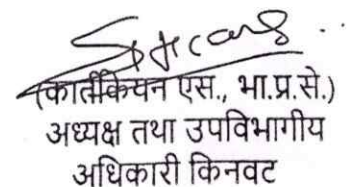 (कार्तीकेयन एस., भा.प्र.से.)
अध्यक्ष तथा उपविभागीय
अधिकारी किनवट